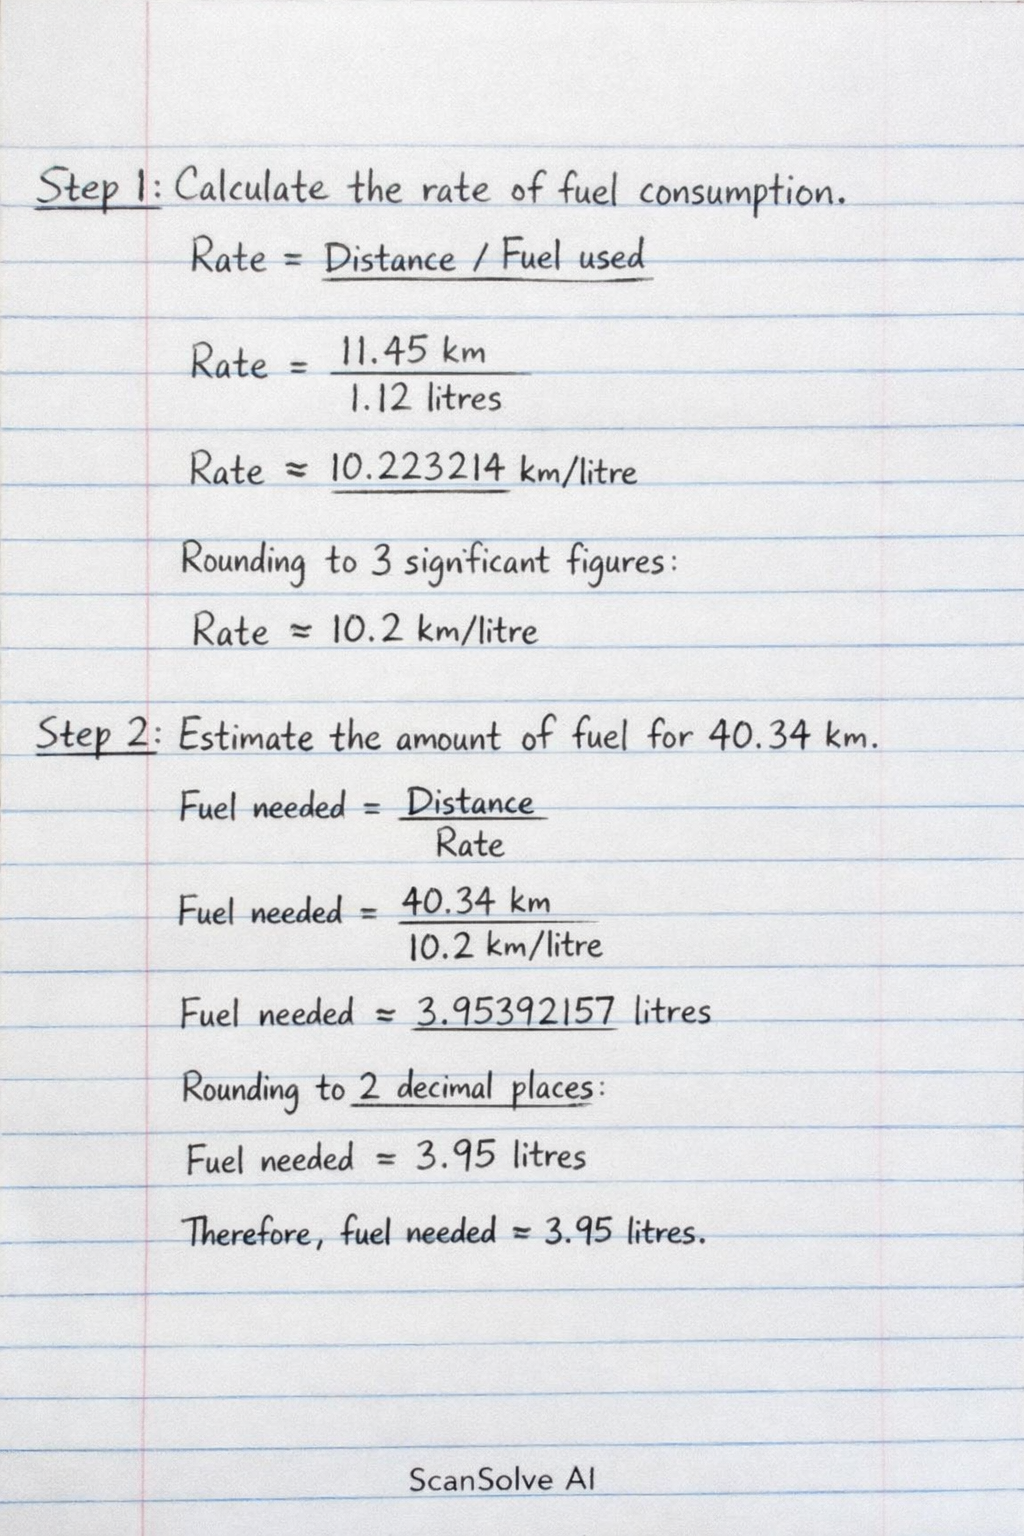 Step 1: Calculate the rate of fuel consumption.
Rate = Distance / Fuel used
Rate = 11.45 km
1.12 litres
Rate ≈ 10.223214 km/litre
Rounding to 3 significant figures:
Rate ≈ 10.2 km/litre
Step 2: Estimate the amount of fuel for 40.34 km.
Fuel needed = Distance
Rate
Fuel needed = 40.34 km
10.2 km/litre
Fuel needed ≈ 3.95392157 litres
Rounding to 2 decimal places:
Fuel needed = 3.95 litres
Therefore, fuel needed = 3.95 litres.
ScanSolve AI